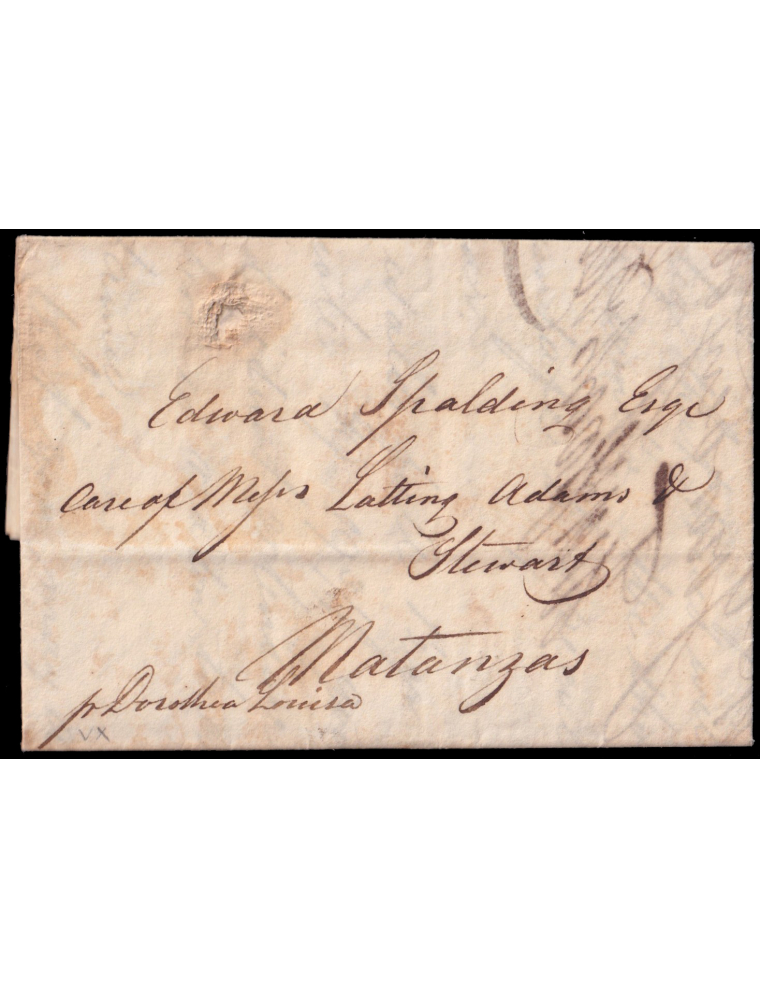 Edward Spalding Esqe
Care of Messrs Latting Adams &
Stewart
Matanzas
pr Dorothea Louisa
VX